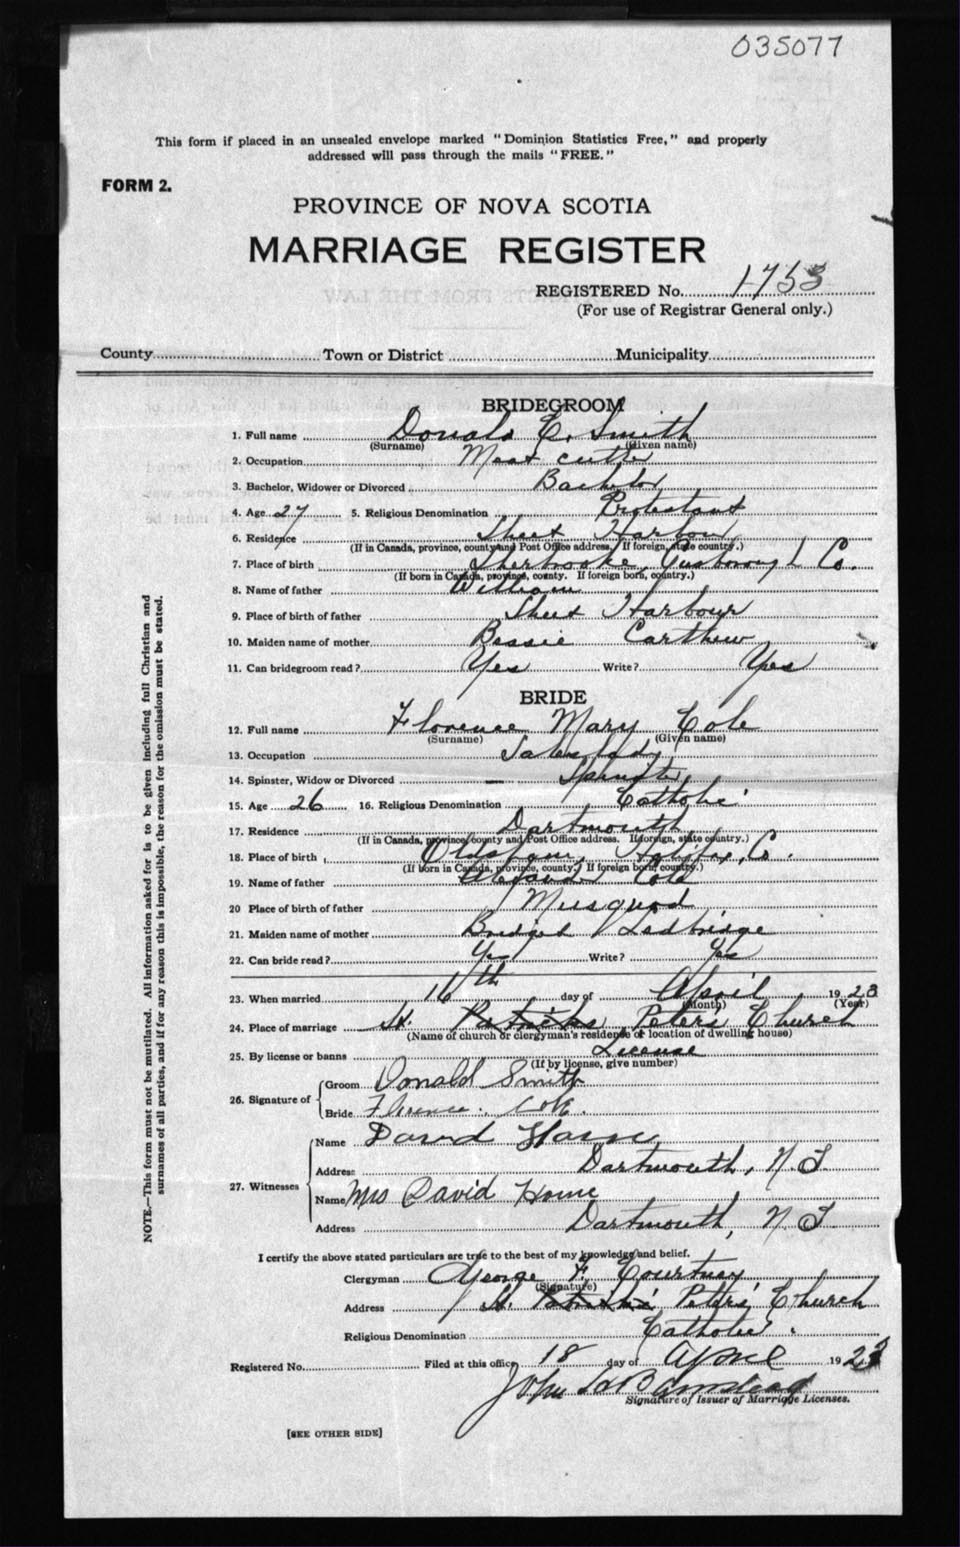 035077
This form if placed in an unsealed envelope marked "Dominion Statistics Free," and properly
addressed will pass through the mails "FREE."
FORM 2.
PROVINCE OF NOVA SCOTIA
MARRIAGE REGISTER
REGISTERED No. 1753
(For use of Registrar General only.)
County Town or District Municipality
BRIDEGROOM
1. Full name Donald E. Smith
(Surname) (Given name)
2. Occupation Meat cutter
3. Bachelor, Widower or Divorced Bachelor
4. Age 27 5. Religious Denomination Protestant
6. Residence Sheet Harbour
(If in Canada, province, county and Post Office address. If foreign, state country.)
7. Place of birth Sherbrooke, Guysborough Co.
(If born in Canada, province, county. If foreign born, country.)
8. Name of father William
9. Place of birth of father Sheet Harbour
10. Maiden name of mother Bessie Carthew
11. Can bridegroom read? Yes Write? Yes
BRIDE
12. Full name Florence Mary Cole
(Surname) (Given name)
13. Occupation Saleslady
14. Spinster, Widow or Divorced Spinster
15. Age 26 16. Religious Denomination Catholic
17. Residence Dartmouth
(If in Canada, province, county and Post Office address. If foreign, state country.)
18. Place of birth Halifax, Co.
(If born in Canada, province, county. If foreign born, country.)
19. Name of father Cole
20 Place of birth of father Musquod
21. Maiden name of mother Bridget
22. Can bride read? Yes Write? Yes
23. When married 16th day of April 1923
(Month) (Year)
24. Place of marriage St. Patricks Peter's Church
(Name of church or clergyman's residence or location of dwelling house)
25. By license or banns License
(If by license, give number)
26. Signature of Groom Donald Smith
Bride Florence Cole.
27. Witnesses Name David
Address Dartmouth, N.S.
Name Mrs David Horne
Address Dartmouth, N.S.
I certify the above stated particulars are true to the best of my knowledge and belief.
Clergyman George F. Courtney
(Signature)
Address St. Patricks' Peter's Church
Religious Denomination Catholic.
Registered No. Filed at this office 18 day of April 1923
John
Signature of Issuer of Marriage Licenses.
[SEE OTHER SIDE]
NOTE.—This form must not be mutilated. All information asked for is to be given including full Christian and
surnames of all parties, and if for any reason this is impossible, the reason for the omission must be stated.